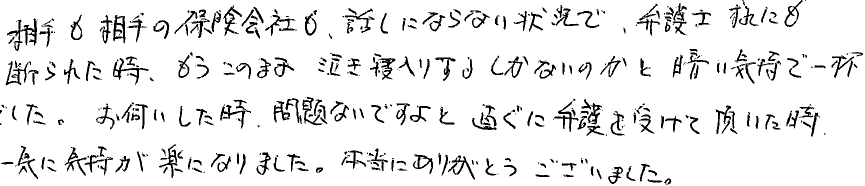 相手も相手の保険会社も、話しにならない状況で、弁護士様にも
断られた時、もうこのまま泣き寝入りするしかないのかと暗い気持で一杯
でした。お伺いした時、問題ないですよと直ぐに弁護を受けて頂いた時、
一気に気持が楽になりました。本当にありがとうございました。